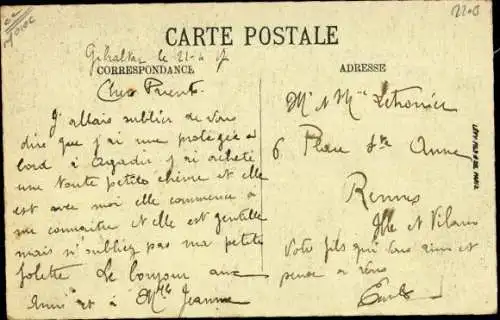 2205
CARTE POSTALE
Gibraltar le 21-4
CORRESPONDANCE
ADRESSE
Chers Parents
J'allais oublier de vous
dire que j'ai une protégée a
bord à Agadir j'ai acheté
une toute petite chèvre et elle
est avec moi elle commence a
me connaitre et elle est gentille
mais n'oubliez pas ma petite
folette Le bonjour aux
amis et à Mlle Jeanne
Mr & Mme
6 Place Ste Anne
Rennes
Ille et Vilaine
Votre fils qui vous aime et
pense a vous